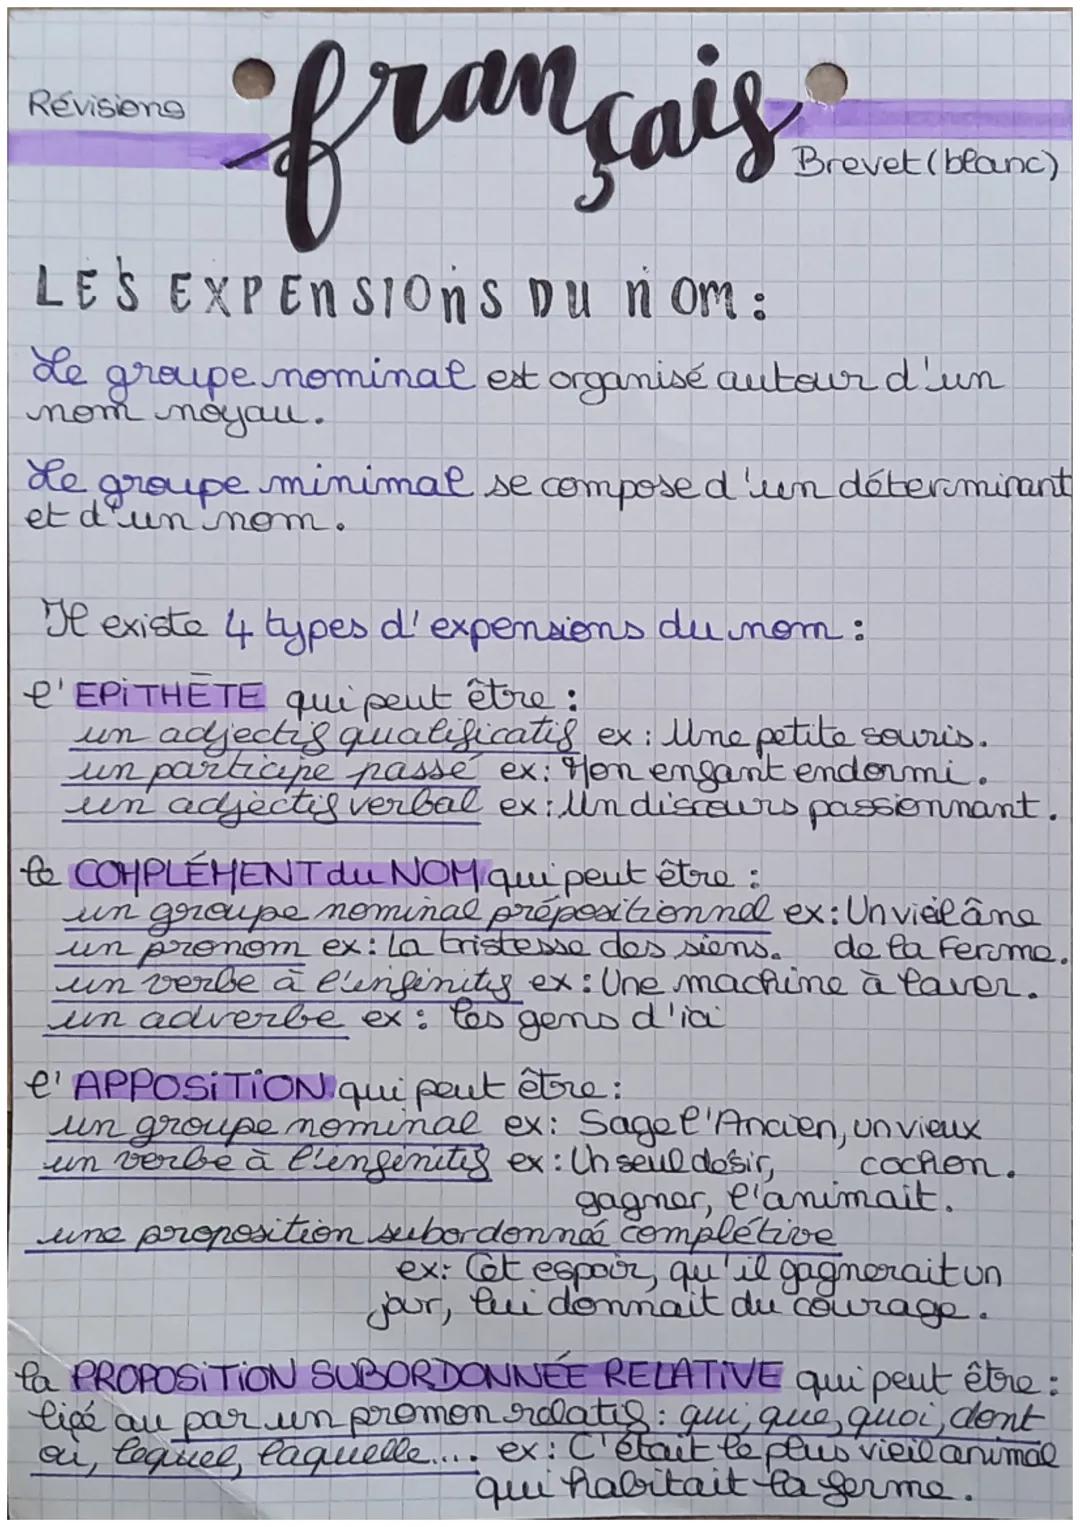 Révisions
français
Brevet (blanc)
LES EXPENSIONS DU NOM :
Le groupe nominal est organisé autour d'un
nom noyau.
Le groupe minimal se compose d'un déterminant
et d'un nom.
Il existe 4 types d'expensions du nom :
l'EPITHÈTE qui peut être :
un adjectif qualificatif ex : Une petite souris.
un participe passé ex : Mon enfant endormi.
un adjectif verbal ex : Un discours passionnant.
le COMPLÉMENT du NOM qui peut être :
un groupe nominal prépositionnel ex : Un vieil âne
de la ferme.
un pronom ex : La tristesse des siens.
un verbe à l'infinitif ex : Une machine à laver.
un adverbe ex : les gens d'ici
l'APPOSITION qui peut être :
un groupe nominal ex : Sage l'Ancien, un vieux
cochon.
un verbe à l'infinitif ex : Un seul désir,
gagner, l'animait.
une proposition subordonnée complétive
ex : Cet espoir, qu'il gagnerait un
jour, lui donnait du courage.
la PROPOSITION SUBORDONNÉE RELATIVE qui peut être :
lié au par un pronom relatif : qui, que, quoi, dont
où, lequel, laquelle.... ex : C'était le plus vieil animal
qui habitait la ferme.